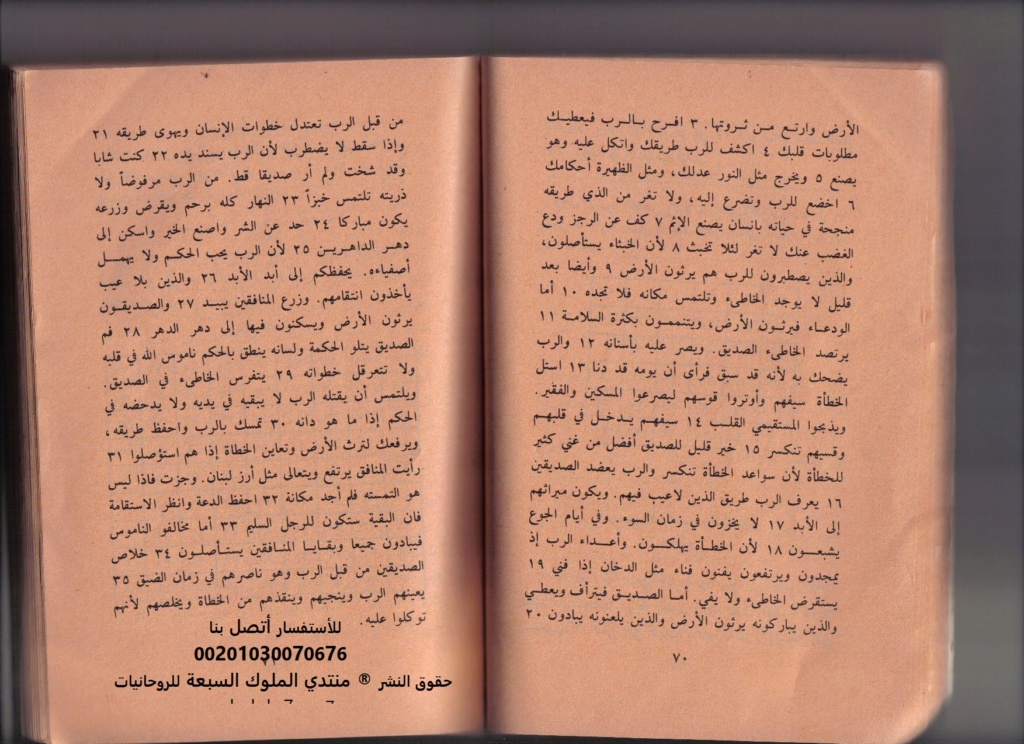 الأرض وارتع من ثروتها. ٣ افرح بالرب فيعطيك
مطلوبات قلبك ٤ اكشف للرب طريقك واتكل عليه وهو
يصنع ٥ ويخرج مثل النور عدلك، ومثل الظهيرة أحكامك
٦ اخضع للرب وتضرع إليه، ولا تغر من الذي طريقه
منجحة في حياته بانسان يصنع الإثم ٧ كف عن الرجز ودع
الغضب عنك لا تغر لئلا تخبث ٨ لأن الخبثاء يستأصلون،
والذين يصطبرون للرب هم يرثون الأرض ٩ وأيضا بعد
قليل لا يوجد الخاطىء وتلتمس مكانه فلا تجده ١٠ أما
الودعاء فيرثون الأرض، ويتنعمون بكثرة السلامة ١١
يرتصد الخاطىء الصديق. ويصر عليه بأسنانه ١٢ والرب
يضحك به لأنه قد سبق فرأى أن يومه قد دنا ١٣ استل
الخطأة سيفهم وأوتروا قوسهم ليصرعوا المسكين والفقير.
ويذبحوا المستقيمي القلب ١٤ سيفهم يدخل في قلبهم
وقسيهم تنكسر ١٥ خير قليل للصديق أفضل من غني كثير
للخطأة لأن سواعد الخطأة تنكسر والرب يعضد الصديقين
١٦ يعرف الرب طريق الذين لاعيب فيهم. ويكون ميراثهم
إلى الأبد ١٧ لا يخزون في زمان السوء. وفي أيام الجوع
يشبعون ١٨ لأن الخطأة يهلكون. وأعداء الرب إذ
يمجدون ويرتفعون يفنون فناء مثل الدخان إذا فني ١٩
يستقرض الخاطىء ولا يفي. أما الصديق فيترأف ويعطي
والذين يباركونه يرثون الأرض والذين يلعنونه يبادون ٢٠
٧٠
من قبل الرب تعتدل خطوات الإنسان ويهوى طريقه ٢١
وإذا سقط لا يضطرب لأن الرب يسند يده ٢٢ كنت شابا
وقد شخت ولم أر صديقا قط. من الرب مرفوضاً ولا
ذريته تلتمس خبزاً ٢٣ النهار كله يرحم ويقرض وزرعه
يكون مباركا ٢٤ حد عن الشر واصنع الخير واسكن إلى
دهر الداهرين ٢٥ لأن الرب يحب الحكم ولا يهمل
أصفياءه. يحفظكم إلى أبد الأبد ٢٦ والذين بلا عيب
يأخذون انتقامهم. وزرع المنافقين يبيد ٢٧ والصديقون
يرثون الأرض ويسكنون فيها إلى دهر الدهر ٢٨ فم
الصديق يتلو الحكمة ولسانه ينطق بالحكم ناموس الله في قلبه
ولا تتعرقل خطواته ٢٩ يتفرس الخاطىء في الصديق.
ويلتمس أن يقتله الرب لا يبقيه في يديه ولا يدحضه في
الحكم إذا ما هو دانه ٣٠ تمسك بالرب واحفظ طريقه،
ويرفعك لترث الأرض وتعاين الخطاة إذا هم استؤصلوا ٣١
رأيت المنافق يرتفع ويتعالى مثل أرز لبنان. وجزت فاذا ليس
هو التمسته فلم أجد مكانة ٣٢ احفظ الدعة وانظر الاستقامة
فان البقية ستكون للرجل السليم ٣٣ أما مخالفو الناموس
فيبادون جميعا وبقايا المنافقين يستأصلون ٣٤ خلاص
الصديقين من قبل الرب وهو ناصرهم في زمان الضيق ٣٥
يعينهم الرب وينجيهم وينقذهم من الخطاة ويخلصهم لأنهم
توكلوا عليه.
للأستفسار أتصل بنا
00201030070676
حقوق النشر ® منتدي الملوك السبعة للروحانيات